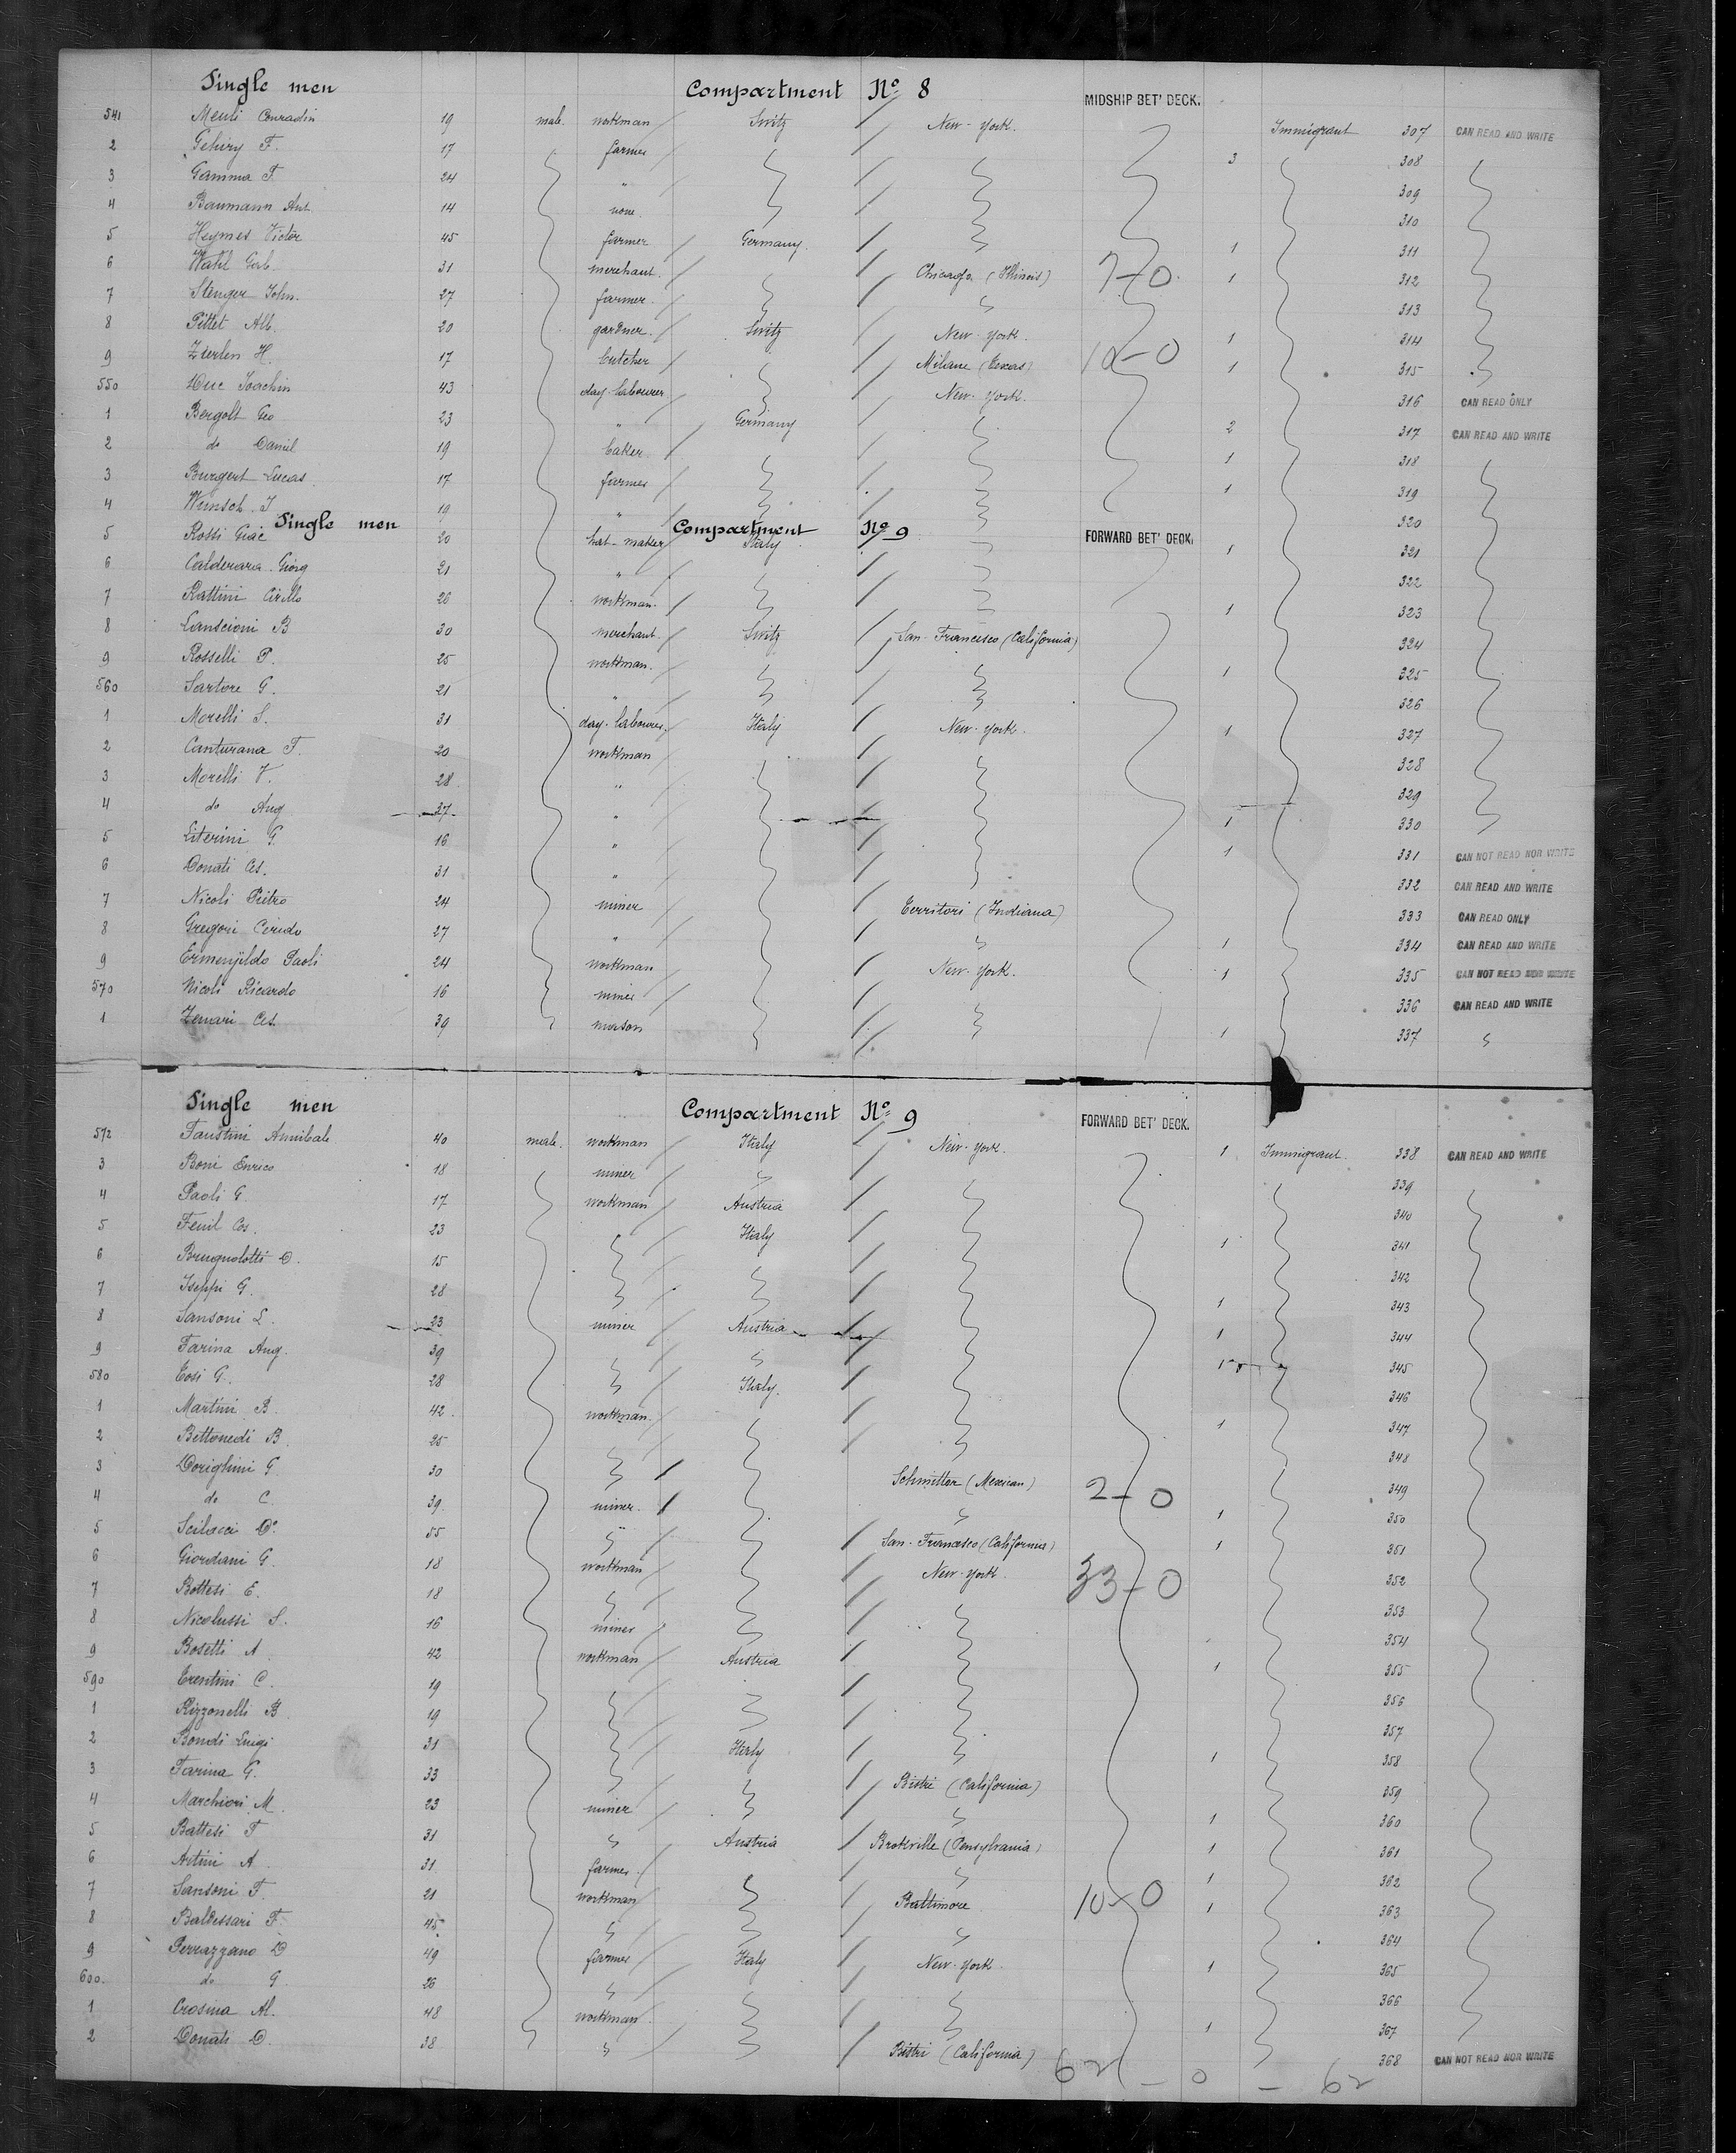 Single men Compartment No 8 MIDSHIP BET' DECK.
541 Meuli Conradin 19 male. workman Switz New-York. Immigrant 307 CAN READ AND WRITE
2 Gehiry F. 17 farmer 3 308
3 Gamma F. 24 " 309
4 Baumann Ant. 14 none. 310
5 Heymes Victor 45 farmer Germany. 1 311
6 Wahl Gab. 31 merchant. Chicago (Illinois) 7-0 1 312
7 Stenger John. 27 farmer. 313
8 Pittet Alb. 20 gardner. Switz New-York. 1 314
9 Zierlen H. 17 butcher Milane (Texas) 10-0 1 315
550 Duc Joachin 43 day-labourer New-York. 316 CAN READ ONLY
1 Bergolt Geo 23 " Germany 2 317 CAN READ AND WRITE
2 do Daniel 19 baker 1 318
3 Burgert Lucas 17 farmer 1 319
4 Wunsch. J 19 " 320
Single men Compartment No 9 FORWARD BET' DECK.
5 Rossi Giac 20 hat-maker Italy 1 321
6 Calderara Giorg 21 " 322
7 Rattini Cirillo 26 workman. 1 323
8 Canscioni B 30 merchant. Switz San-Francisco (California) 324
9 Rosselli P. 25 workman. 1 325
560 Sartore G. 21 " 326
1 Morelli S. 31 day-labourer. Italy New-York. 1 327
2 Canturana F. 20 workman 328
3 Morelli V. 28 " 329
4 do Aug 37 " 1 330
5 Literini G. 16 " 1 331 CAN NOT READ NOR WRITE
6 Donati Ces. 31 " 332 CAN READ AND WRITE
7 Nicoli Pietro 24 miner Territori (Indiana) 333 CAN READ ONLY
8 Gregori Cerido 27 " 1 334 CAN READ AND WRITE
9 Ermenjildo Paoli 24 workman New-York. 1 335 CAN NOT READ NOR WRITE
570 Nicoli Ricardo 16 miner 336 CAN READ AND WRITE
1 Zenari Ces. 39 mason 1 337
Single men Compartment No 9 FORWARD BET' DECK.
572 Faustini Annibale 40 male. workman Italy New-York. 1 Immigrant. 338 CAN READ AND WRITE
3 Boni Enrico 18 miner 339
4 Paoli G. 17 workman Austria 340
5 Feuil Cos. 23 Italy 1 341
6 Brugnolotti D. 15 342
7 Iseppi G. 28 1 343
8 Sansoni L. 23 miner Austria 1 344
9 Farina Aug. 39 1 345
580 Tosi G. 28 Italy. 346
1 Martini B. 42. workman. 1 347
2 Bettonedi B. 25 348
3 Dorighini G 30 Schmitter (Mexican) 2-0 349
4 do C. 39. miner. 1 350
5 Scilacci Do. 55 " San-Francisco (California) 1 351
6 Giordani G. 18 workman New-York 33-0 352
7 Bottesi E. 18 353
8 Nicolussi S. 16 miner 354
9 Bosetti A. 42 workman Austria 1 355
590 Trentini C. 19 356
1 Rizzonelli B. 19 357
2 Bondi Luigi 31 Italy 1 358
3 Farina G. 33 Bistri (California) 359
4 Marchiori M. 23 miner 1 360
5 Battesi F 31 Austria Brokville (Pensylvania) 1 361
6 Artini A. 31. farmer. 1 362
7 Sansoni F. 21 workman Baltimore 10-0 1 363
8 Baldessari F. 45 364
9 Perrazzano D 49 farmer Italy New-York. 1 365
600. do G. 26 366
1 Crosina Al. 48 workman. 1 367
2 Donati D. 38 Bistri (California) 368 CAN NOT READ NOR WRITE
62 - 0 - 62